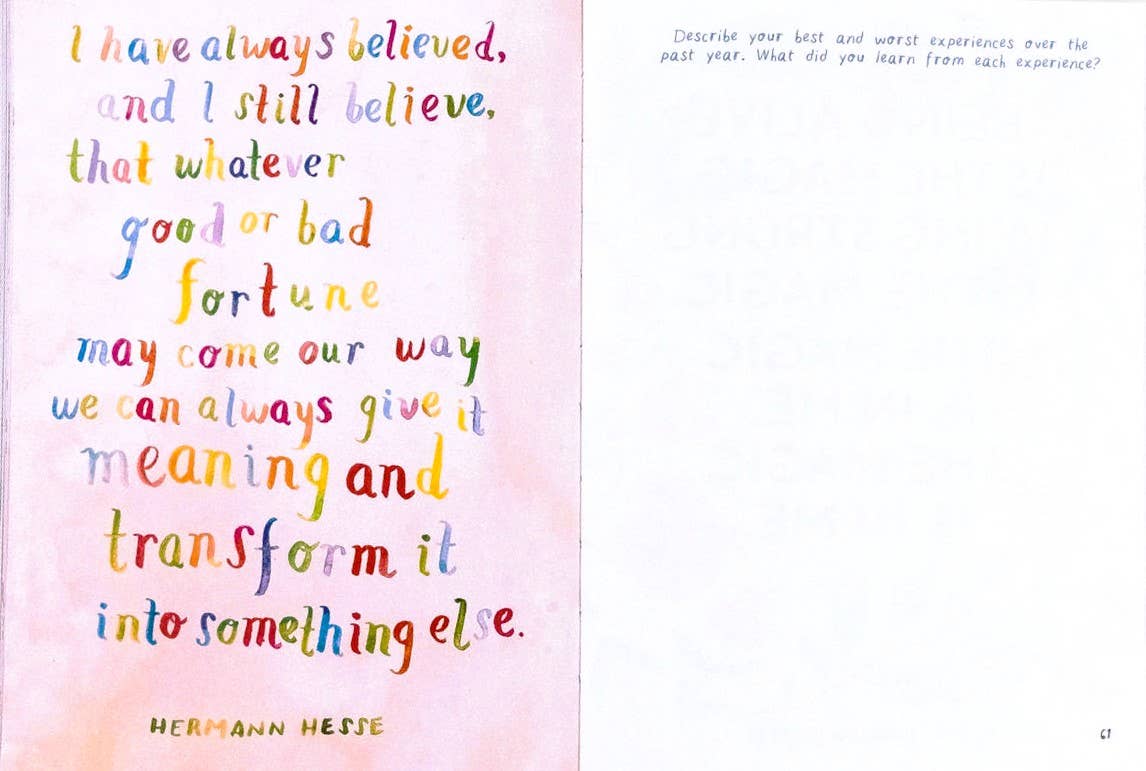 I have always believed,
and I still believe,
that whatever
good or bad
fortune
may come our way
we can always give it
meaning and
transform it
into something else.
HERMANN HESSE
Describe your best and worst experiences over the
past year. What did you learn from each experience?
61